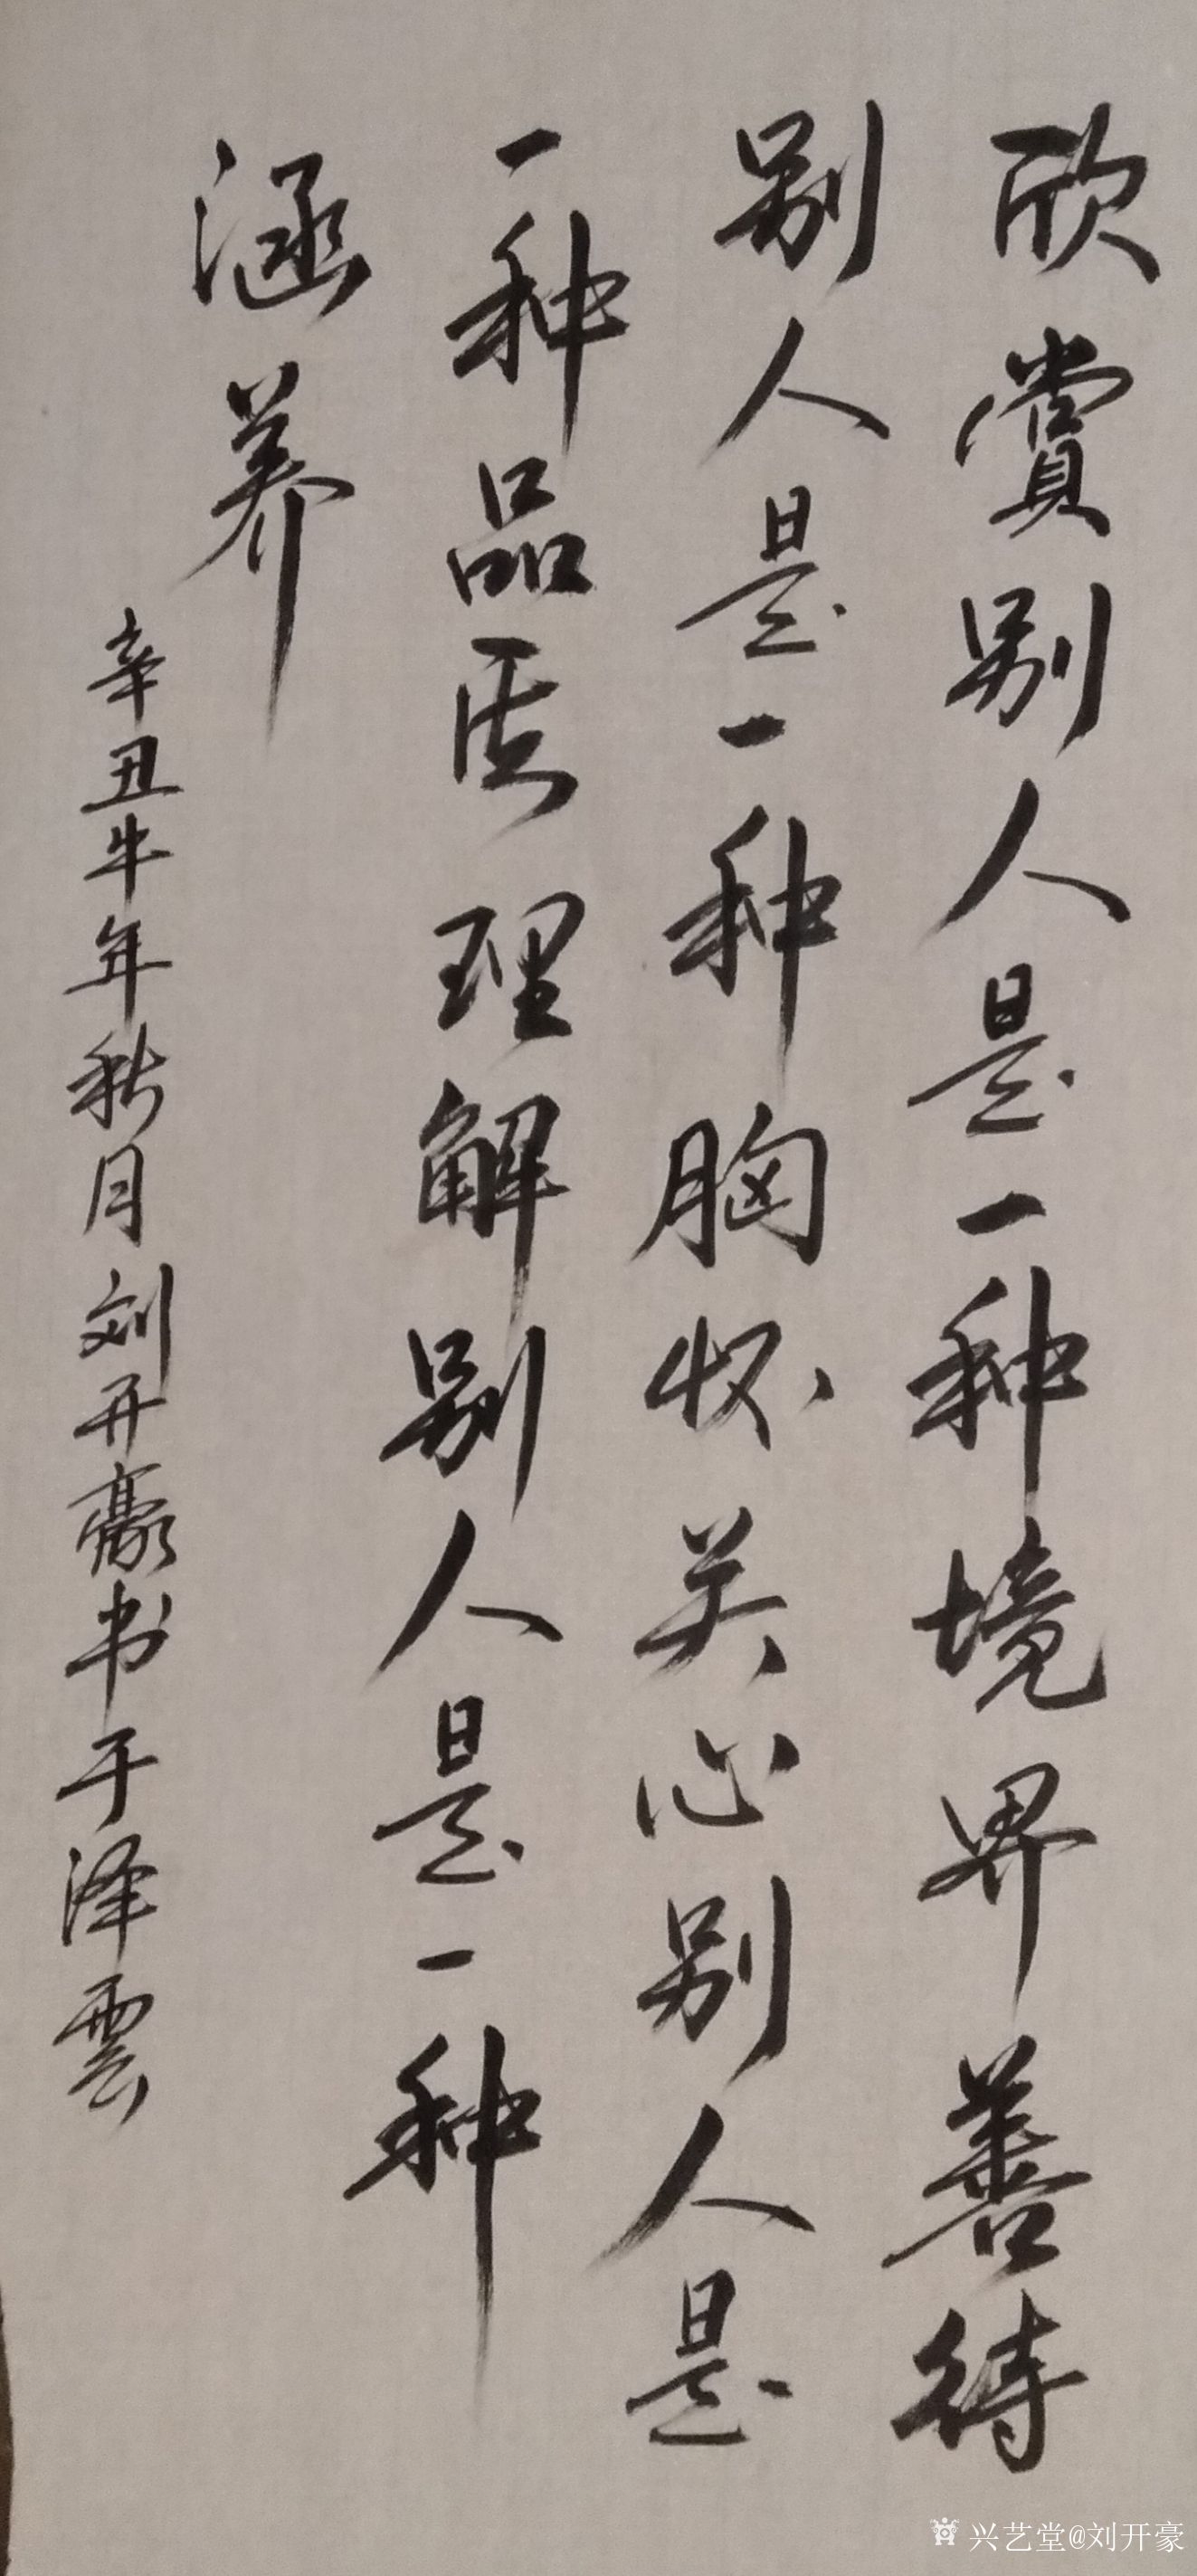 欣赏别人是一种境界善待
别人是一种胸怀关心别人是
一种品质理解别人是一种
涵养
辛丑牛年秋月刘开豪书于泽雲
兴艺堂@刘开豪